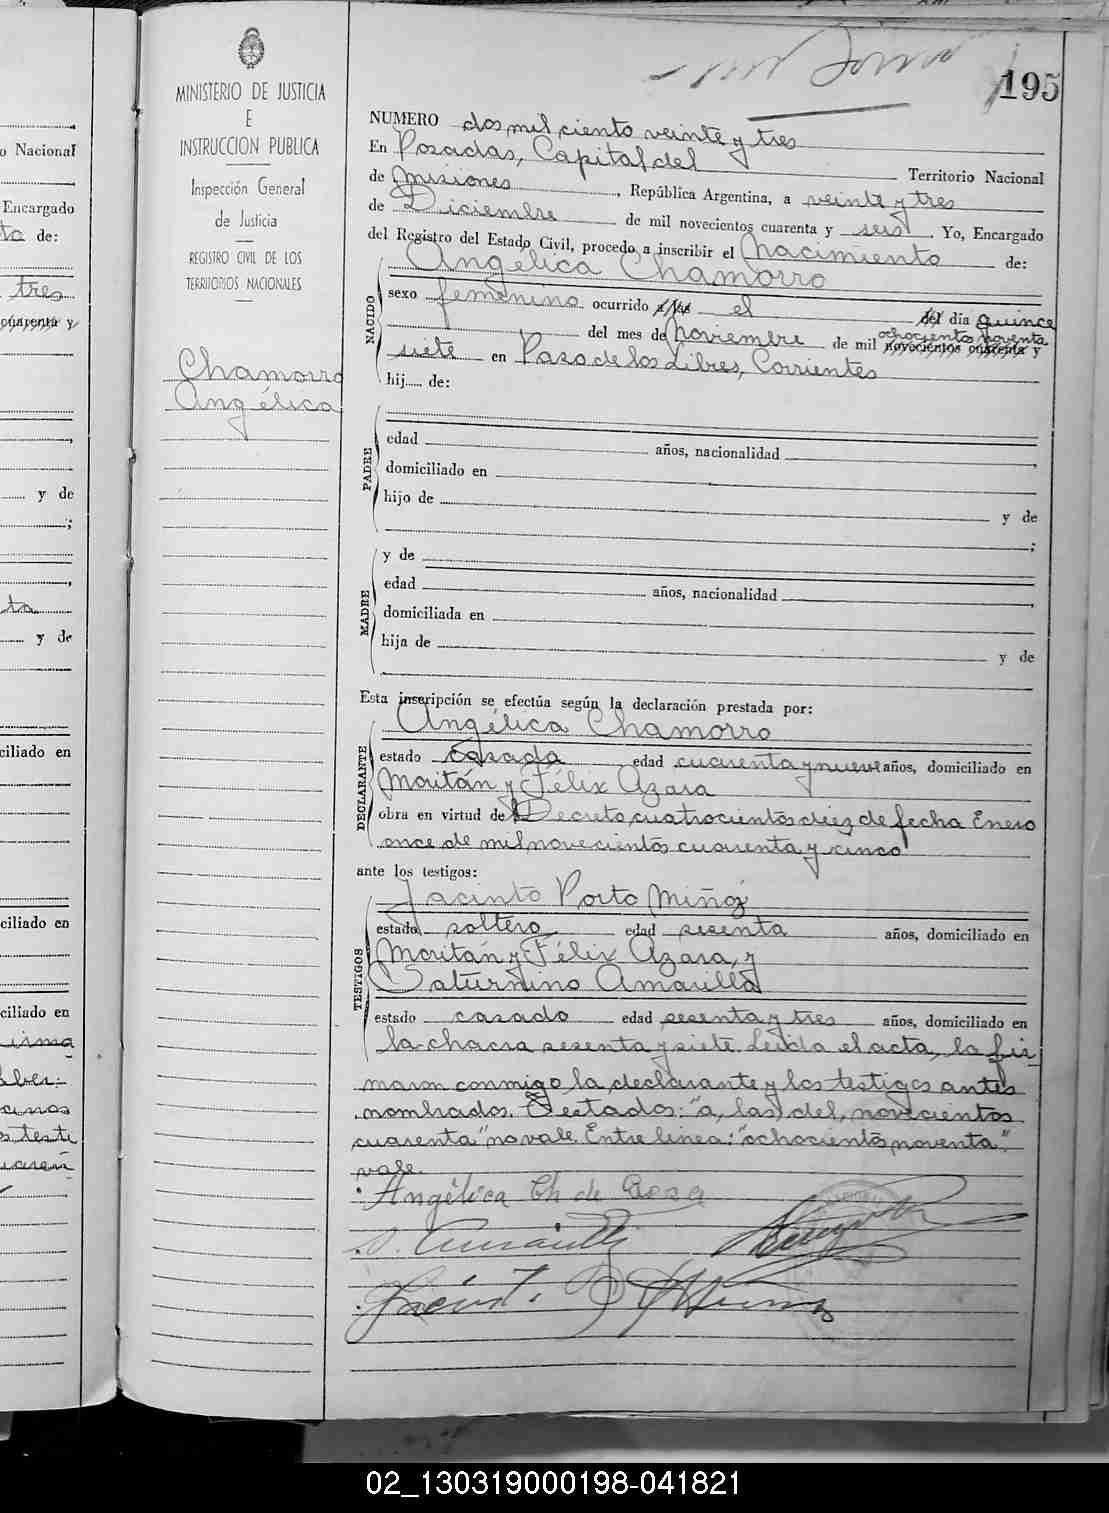 195
MINISTERIO DE JUSTICIA
E
INSTRUCCION PUBLICA
Inspección General
de Justicia
REGISTRO CIVIL DE LOS
TERRITORIOS NACIONALES
Chamorro
Angélica
NUMERO dos mil ciento veinte y tres
En Posadas, Capital del Territorio Nacional
de Misiones, República Argentina, a veinte y tres
de Diciembre de mil novecientos cuarenta y seis. Yo, Encargado
del Registro del Estado Civil, procedo a inscribir el Nacimiento de:
Angélica Chamorro
NACIDO
sexo femenino ocurrido a las el del día quince
del mes de Noviembre de mil novecientos cuarenta y
ochocientos noventa
siete en Paso de los Libres, Corrientes
hij de:
PADRE
edad años, nacionalidad ,
domiciliado en
hijo de y de
;
MADRE
y de
edad años, nacionalidad ,
domiciliada en
hija de y de
Esta inscripción se efectúa según la declaración prestada por:
Angélica Chamorro
DECLARANTE
estado casada edad cuarenta y nueve años, domiciliado en
Moritán y Félix Azara
obra en virtud del Decreto cuatrocientos diez de fecha Enero
once de mil novecientos cuarenta y cinco
ante los testigos:
Jacinto Porto Miñoz
TESTIGOS
estado soltero edad sesenta años, domiciliado en
Moritán y Félix Azara, y
Saturnino Amarilla
estado casado edad sesenta y tres años, domiciliado en
la chacra sesenta y siete. Leida el acta, la fir
maron conmigo la declarante y los testigos antes
nombrados. Testados: "a, las, del, novecientos
cuarenta" no vale. Entre linea: "ochocientos noventa"
vale.
Angélica Ch de
Nacional
Encargado
de:
tres
cuarenta y
y de
;
y de
ciliado en
ciliado en
ciliado en
02_130319000198-041821